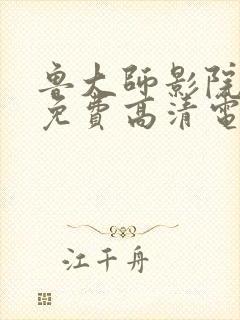 鲁大师影院
免費高清電
江千舟